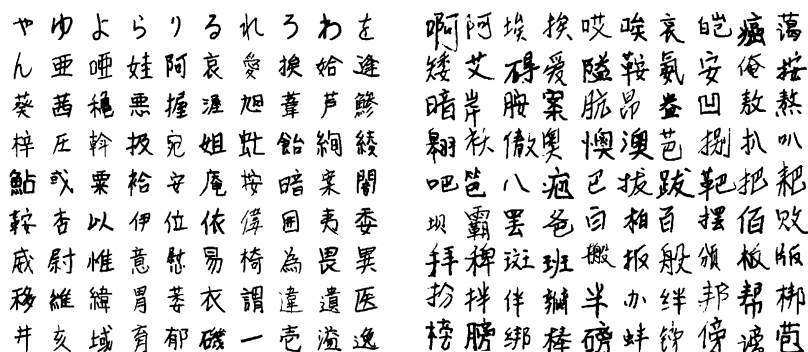 や ゆ よ ら り る れ ろ わ を
ん 亜 唖 娃 阿 哀 愛 挨 姶 逢
葵 茜 穐 悪 握 渥 旭 葦 芦 鯵
梓 圧 斡 扱 宛 姐 虻 飴 絢 綾
鮎 或 粟 袷 安 庵 按 暗 案 闇
鞍 杏 以 伊 位 依 偉 囲 夷 委
威 尉 惟 意 慰 易 椅 為 畏 異
移 維 緯 胃 萎 衣 謂 違 遺 医
井 亥 域 育 郁 磯 一 壱 溢 逸
啊 阿 埃 挨 哎 唉 哀 皑 癌 蔼
矮 艾 碍 爱 隘 鞍 氨 安 俺 按
暗 岸 胺 案 肮 昂 盎 凹 敖 熬
翱 袄 傲 奥 懊 澳 芭 捌 扒 叭
吧 笆 八 疤 巴 拔 跋 靶 把 耙
坝 霸 罢 爸 白 柏 百 摆 佰 败
拜 稗 斑 班 搬 扳 般 颁 板 版
扮 拌 伴 瓣 半 办 绊 邦 帮 梆
榜 膀 绑 棒 磅 蚌 镑 傍 谤 苞